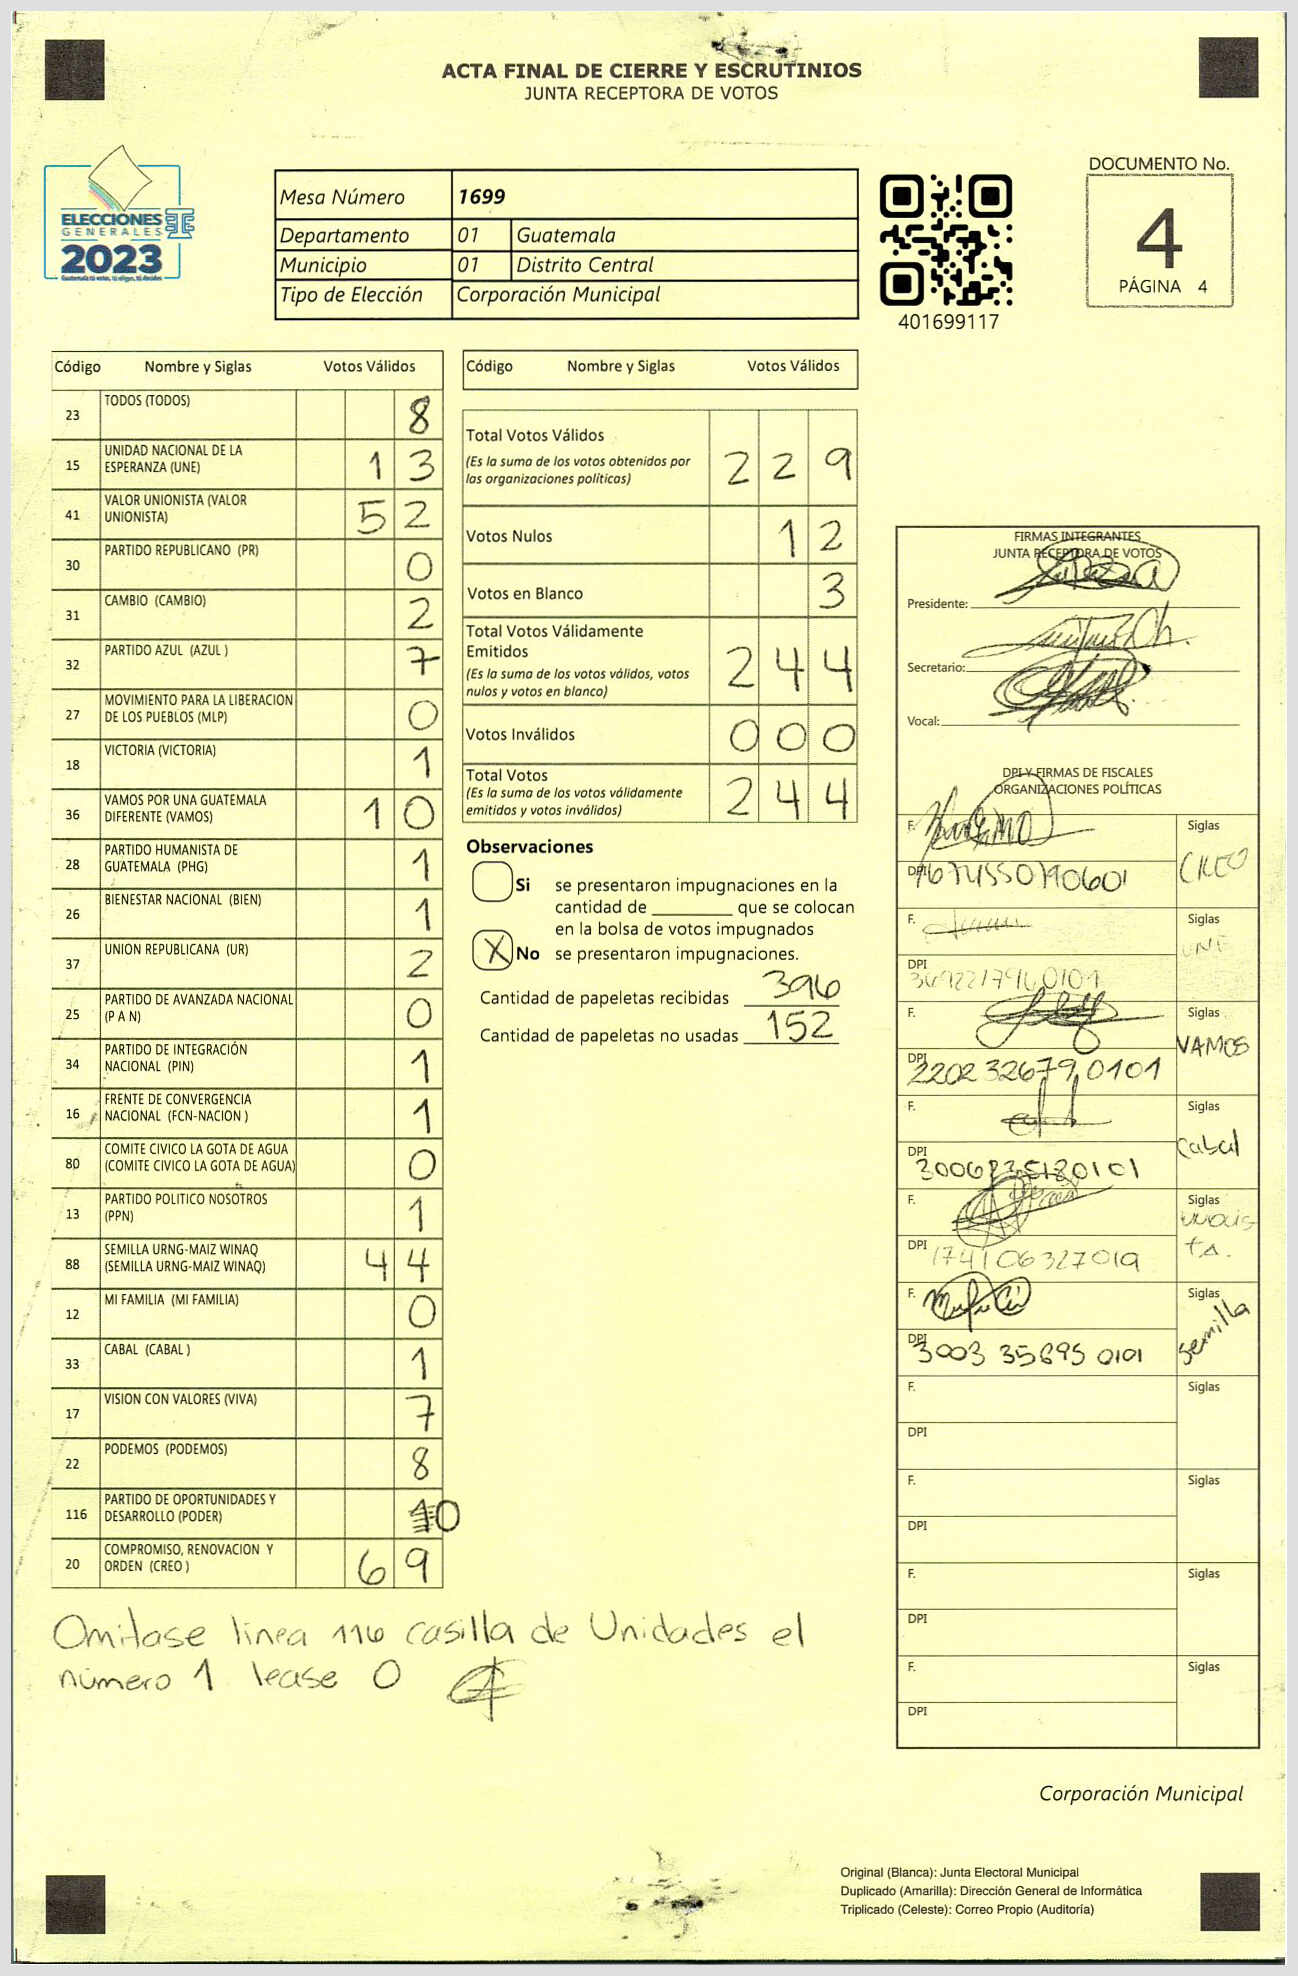 ACTA FINAL DE CIERRE Y ESCRUTINIOS
JUNTA RECEPTORA DE VOTOS
ELECCIONES
GENERALES
2023
Mesa Número 1699
Departamento 01 Guatemala
Municipio 01 Distrito Central
Tipo de Elección Corporación Municipal
401699117
DOCUMENTO No.
4
PÁGINA 4
Código Nombre y Siglas Votos Válidos
23 TODOS (TODOS) 8
15 UNIDAD NACIONAL DE LA
ESPERANZA (UNE) 13
41 VALOR UNIONISTA (VALOR
UNIONISTA) 52
30 PARTIDO REPUBLICANO (PR) 0
31 CAMBIO (CAMBIO) 2
32 PARTIDO AZUL (AZUL ) 7
27 MOVIMIENTO PARA LA LIBERACION
DE LOS PUEBLOS (MLP) 0
18 VICTORIA (VICTORIA) 1
36 VAMOS POR UNA GUATEMALA
DIFERENTE (VAMOS) 10
28 PARTIDO HUMANISTA DE
GUATEMALA (PHG) 1
26 BIENESTAR NACIONAL (BIEN) 1
37 UNION REPUBLICANA (UR) 2
25 PARTIDO DE AVANZADA NACIONAL
(P A N) 0
34 PARTIDO DE INTEGRACIÓN
NACIONAL (PIN) 1
16 FRENTE DE CONVERGENCIA
NACIONAL (FCN-NACION ) 1
80 COMITE CIVICO LA GOTA DE AGUA
(COMITE CIVICO LA GOTA DE AGUA) 0
13 PARTIDO POLITICO NOSOTROS
(PPN) 1
88 SEMILLA URNG-MAIZ WINAQ
(SEMILLA URNG-MAIZ WINAQ) 44
12 MI FAMILIA (MI FAMILIA) 0
33 CABAL (CABAL ) 1
17 VISION CON VALORES (VIVA) 7
22 PODEMOS (PODEMOS) 8
116 PARTIDO DE OPORTUNIDADES Y
DESARROLLO (PODER) 10
20 COMPROMISO, RENOVACION Y
ORDEN (CREO ) 69
Omitase linea 116 casilla de Unidades el
número 1 lease 0
Código Nombre y Siglas Votos Válidos
Total Votos Válidos
(Es la suma de los votos obtenidos por
las organizaciones políticas) 229
Votos Nulos 12
Votos en Blanco 3
Total Votos Válidamente
Emitidos
(Es la suma de los votos válidos, votos
nulos y votos en blanco) 244
Votos Inválidos 000
Total Votos
(Es la suma de los votos válidamente
emitidos y votos inválidos) 244
Observaciones
Si se presentaron impugnaciones en la
cantidad de ________ que se colocan
en la bolsa de votos impugnados
X No se presentaron impugnaciones.
Cantidad de papeletas recibidas 396
Cantidad de papeletas no usadas 152
FIRMAS INTEGRANTES
JUNTA RECEPTORA DE VOTOS
Presidente:
Secretario:
Vocal:
DPI Y FIRMAS DE FISCALES
ORGANIZACIONES POLÍTICAS
F. Siglas
DPI CREO
F. Siglas
DPI UNE
F. Siglas
DPI 2202 32679 0101 VAMOS
F. Siglas
DPI Cabal
F. Siglas
DPI 1741 06327019 unionis
ta.
F. Siglas
DPI 3003 35695 0101 Semilla
F. Siglas
DPI
F. Siglas
DPI
F. Siglas
DPI
F. Siglas
DPI
Corporación Municipal
Original (Blanca): Junta Electoral Municipal
Duplicado (Amarilla): Dirección General de Informática
Triplicado (Celeste): Correo Propio (Auditoría)